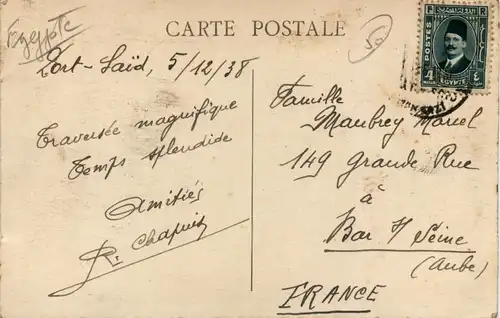 CARTE POSTALE
Egypte
50
Port-Saïd, 5/12/38
Traversée magnifique
Temps splendide
Amitiés
R. Chapuis
POSTES
4
EGYPTE
Famille
Maubrey Marcel
149 Grande Rue
à
Bar s/ Seine
(Aube)
FRANCE